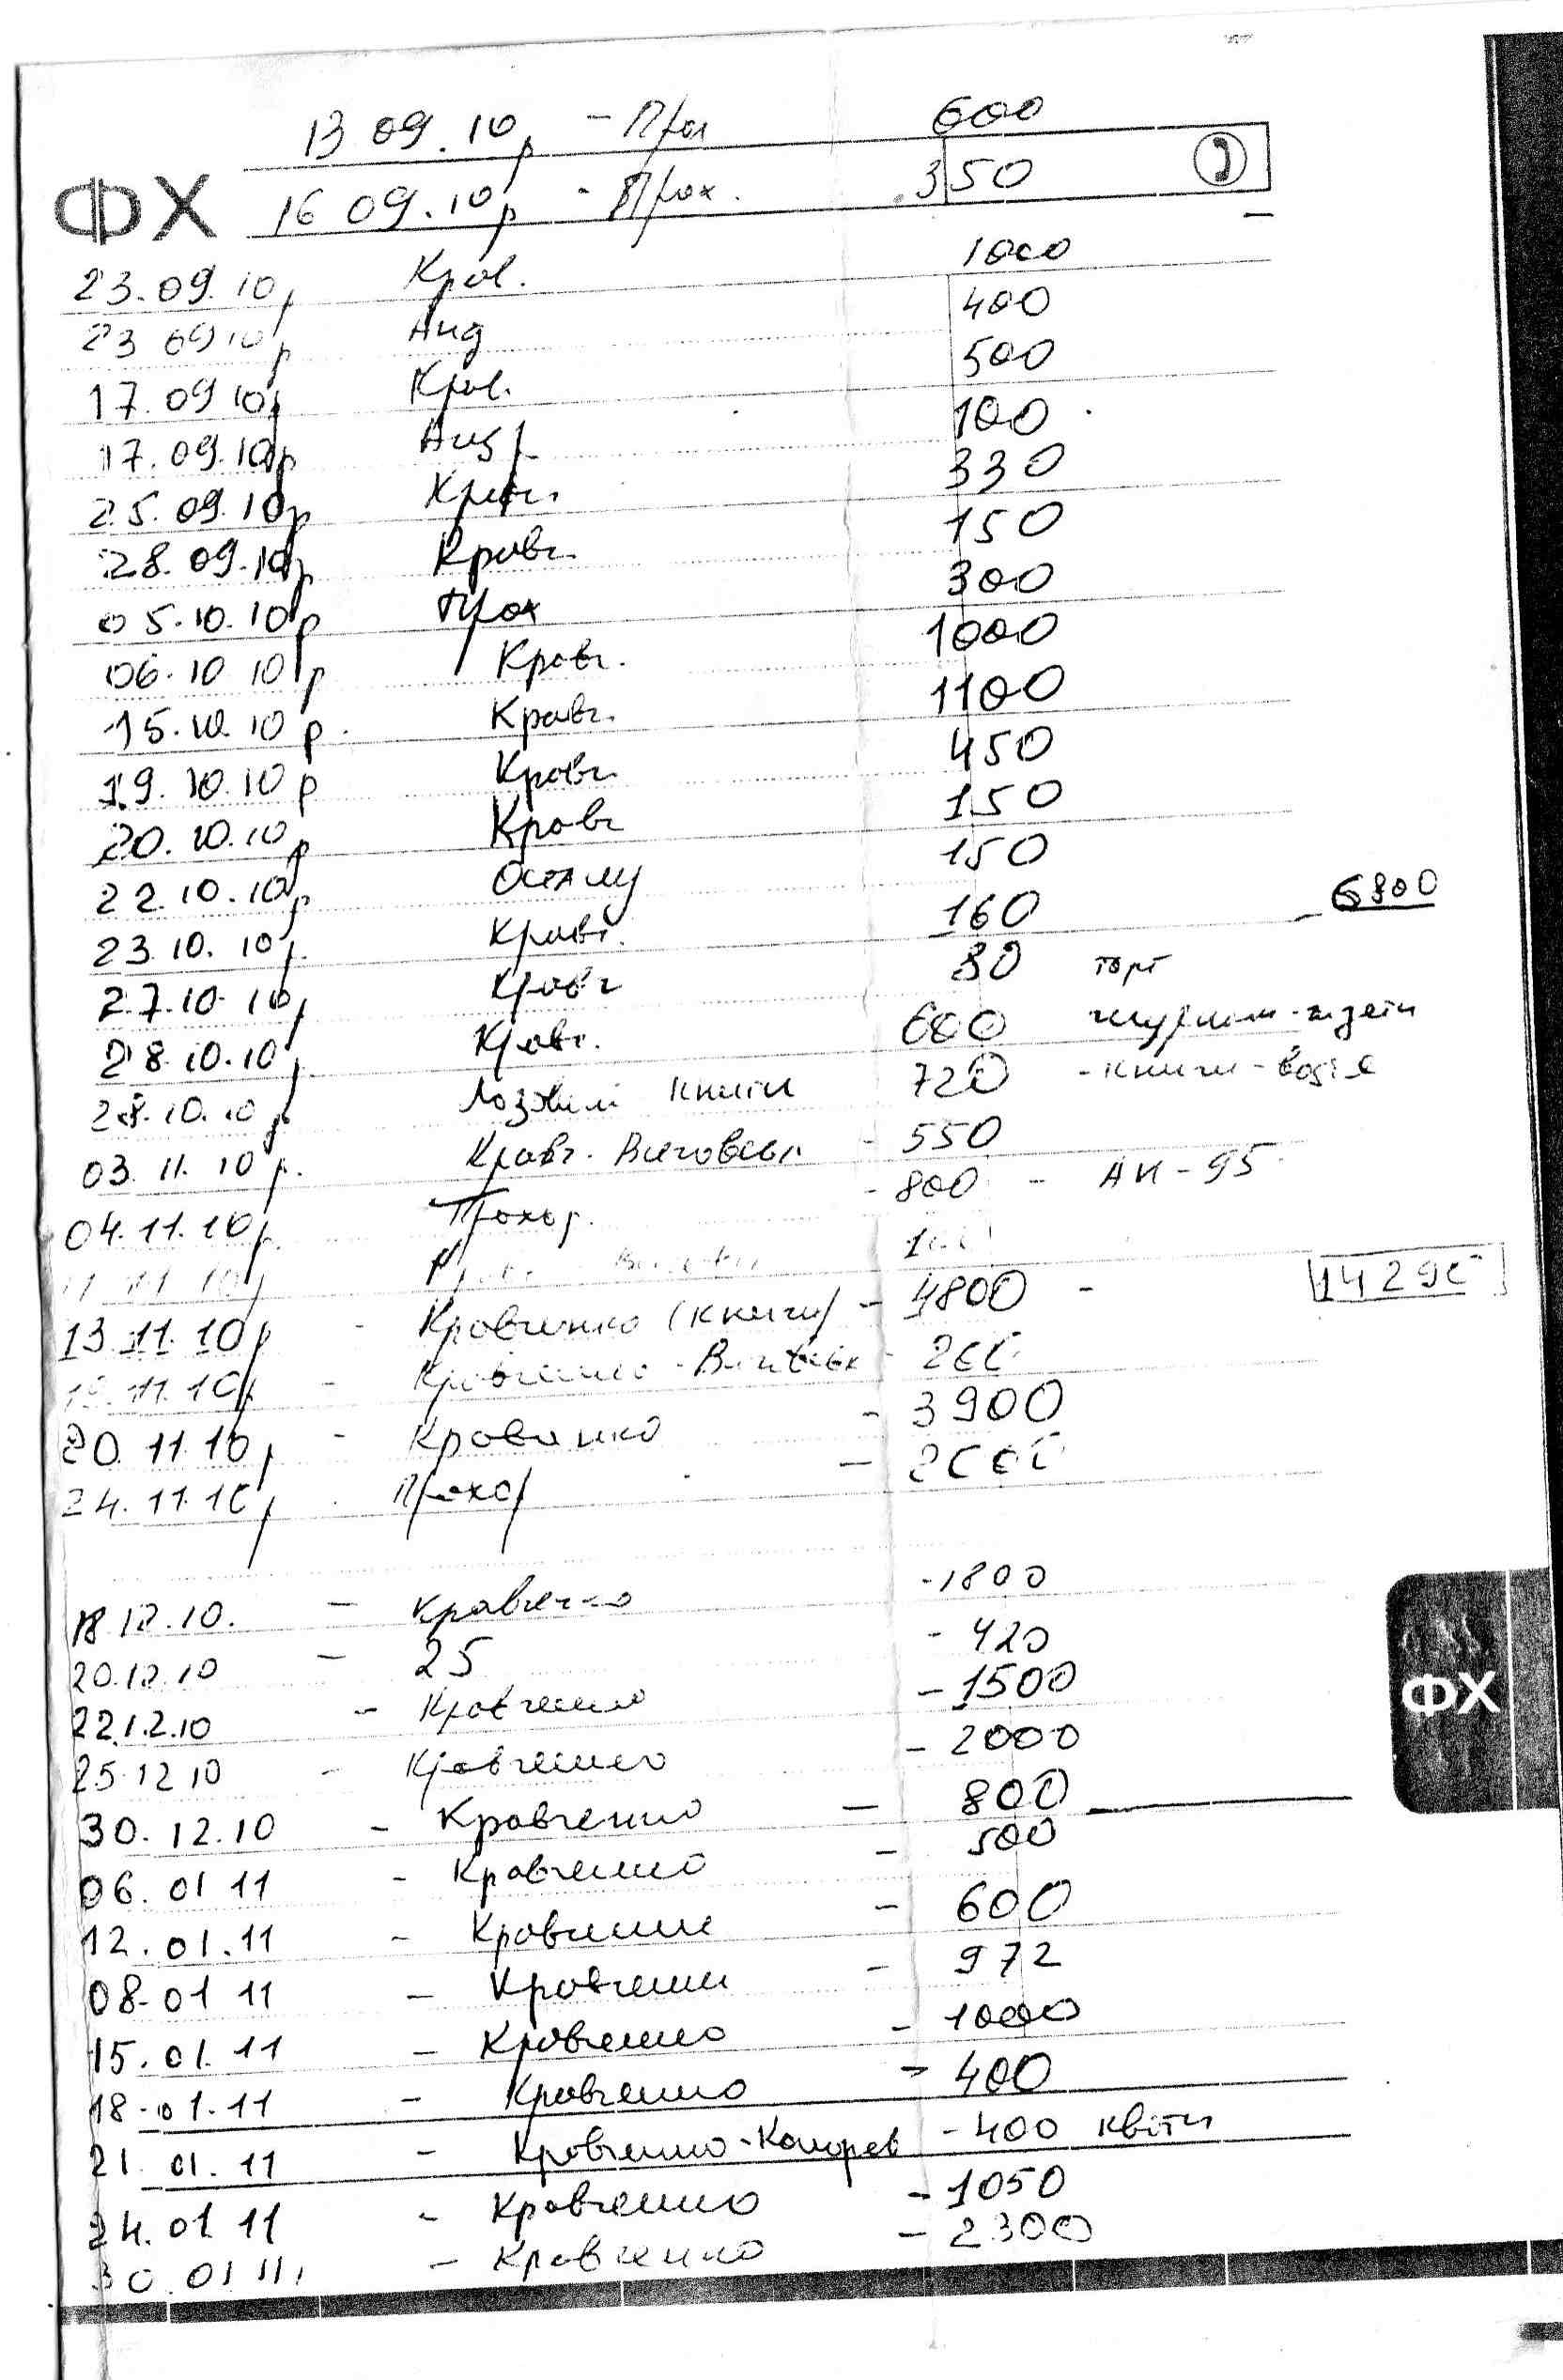 13 09.10р - Прох 600
ФХ 16 09.10р - Прох. 350
23.09.10р Крав. 1000
23 09 10р Анд 400
17.09 10р Крав. 500
17.09.10р Андр 100
25.09.10р Кравч. 330
28.09.10р Кравч 150
05.10.10р Прох 300
06.10 10р Кравч. 1000
15.10.10р. Кравч. 1100
19.10.10р Кравч 450
20.10.10р Кравч 150
22.10.10р 150
23.10.10р. Кравч. 160 6800
27.10.10р Кравч 30 торт
28.10.10р Кравч. 600
28.10.10р книги 720 - книги -
03.11.10р. Кравч. - 550
04.11.10р. Прохор. - 800 - АИ-95
11.11.10р
13.11.10р - Кравченко (книги) - 4800 -
11.10р - Кравченко - - 200
20.11.10р - Кравченко - 3900
24.11.10р Прохор - 2000
18.12.10. - Кравченко - 1800
20.12.10 - 25 - 420
22.12.10 - Кравченко - 1500
25.12 10 - Кравченко - 2000
30.12.10 - Кравченко - 800
06.01 11 - Кравченко - 500
12.01.11 - Кравченко - 600
ФХ
08.01 11 - Кравченко - 972
15.01.11 - Кравченко - 1000
18.01.11 - Кравченко - 400
21.01.11 - Кравченко - - 400 квіти
24.01.11 - Кравченко - 1050
30.01 11. - Кравченко - 2300